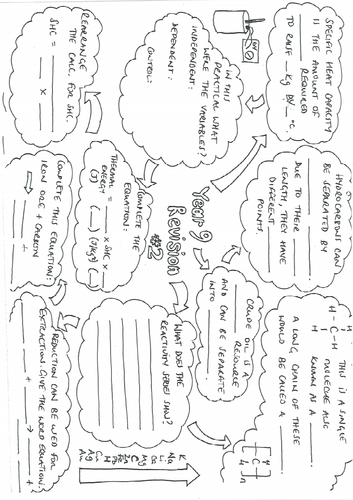 Year 9
Revision
#2
SPECIFIC HEAT CAPACITY
IS THE AMOUNT OF
______ REQUIRED
TO RAISE __ Kg BY __ °C.
IN THIS
PRACTICAL WHAT
WERE THE VARIABLES?
INDEPENDENT:
DEPENDENT:
CONTROL:
REARRANGE
THE CALC. FOR SHC.
SHC = ______
___ x ___
COMPLETE THE
EQUATION:
THERMAL = ___ x SHC x ___
ENERGY
(J) ( ) (J/kg) ( )
HYDROCARBONS CAN
BE SEPARATED BY
______
DUE TO THEIR ______
LENGTH, THEY HAVE
DIFFERENT ______
POINTS.
H
H - C - H
H
THIS IS A SINGLE
MOLECULE ALSO
KNOWN AS A ______
A LONG CHAIN OF THESE
WOULD BE CALLED A ______
CRUDE OIL IS A
______ RESOURCE
AND CAN BE SEPARATED
INTO ______
H
C
H
n
WHAT DOES THE
REACTIVITY SERIES SHOW?
K
Na
Li
Ca
Mg
C
Zn
Fe
Pb
H
Cu
Ag
Au
REDUCTION CAN BE USED FOR
EXTRACTION. GIVE THE WORD EQUATION:
______ + ______ → ______ + ______
COMPLETE THIS EQUATION:
IRON ORE + CARBON
→ ______ + ______